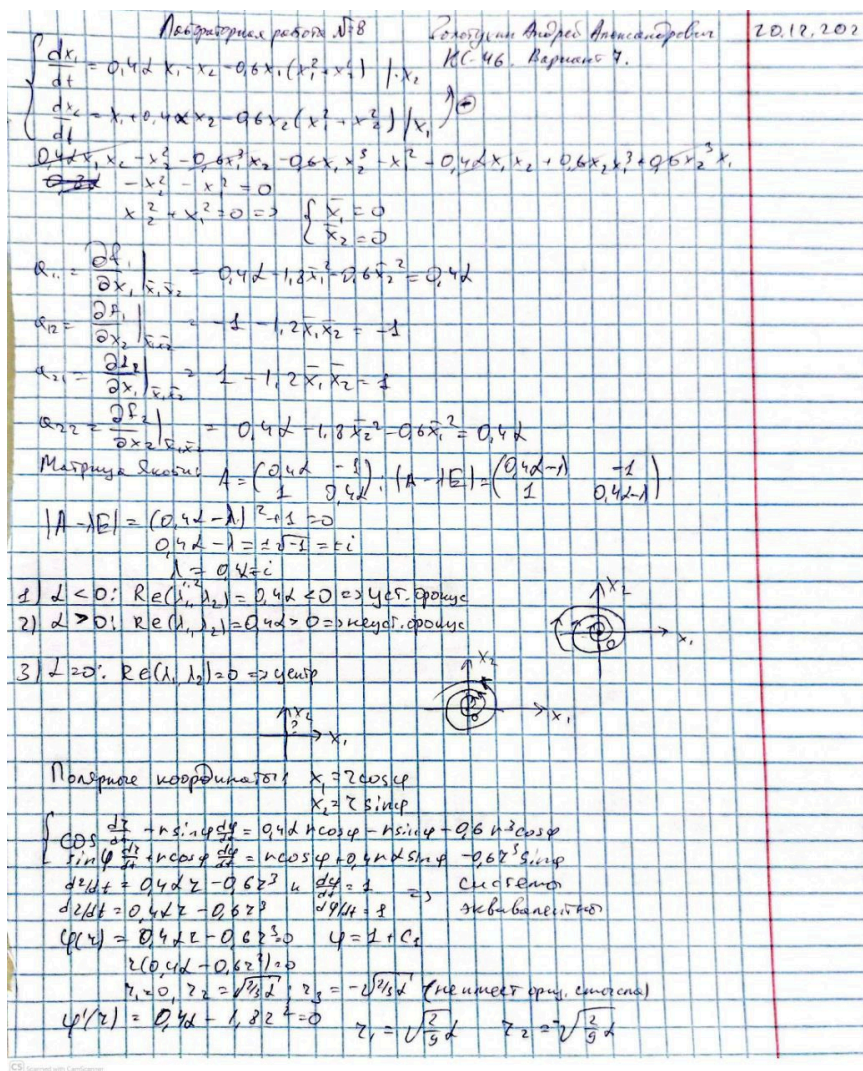 Лабораторная работа №8
Золотухин Андрей Александрович
20.12.202
КС-46. Вариант 7.
dx₁/dt = 0,4α x₁ - x₂ - 0,6x₁(x₁² + x₂²) | · x₂
dx₂/dt = x₁ + 0,4α x₂ - 0,6x₂(x₁² + x₂²) | x₁
0,4αx₁x₂ - x₂² - 0,6x₁³x₂ - 0,6x₁x₂³ - x₁² - 0,4αx₁x₂ + 0,6x₂x₁³ + 0,6x₂³x₁
- x₂² - x₁² = 0
x₂² + x₁² = 0 => { x̄₁ = 0
x̄₂ = 0
a₁₁ = ∂f₁/∂x₁ |x̄₁x̄₂ = 0,4α - 1,8x̄₁² - 0,6x̄₂² = 0,4α
a₁₂ = ∂f₁/∂x₂ |x̄₁x̄₂ = -1 - 1,2x̄₁x̄₂ = -1
a₂₁ = ∂f₂/∂x₁ |x̄₁x̄₂ = 1 - 1,2x̄₁x̄₂ = 1
a₂₂ = ∂f₂/∂x₂ |x̄₁x̄₂ = 0,4α - 1,8x̄₂² - 0,6x̄₁² = 0,4α
Матрица Якоби: A = (0,4α -1
1 0,4α); (A - λE) = (0,4α-λ -1
1 0,4α-λ)
|A - λE| = (0,4α - λ)² + 1 = 0
0,4α - λ = ±√-1 = ±i
λ = 0,4±i
1) α < 0: Re(λ₁, λ₂) = 0,4α < 0 => уст. фокус
2) α > 0: Re(λ₁, λ₂) = 0,4α > 0 => неуст. фокус
x₂
x₁
0
3) α = 0: Re(λ₁ λ₂) = 0 => центр
x₂
x₁
0
x₂
?
x₁
Полярные координаты: x₁ = r cosφ
x₂ = r sinφ
cos dr/dt - r sinφ dφ/dt = 0,4α r cosφ - r sinφ - 0,6 r³ cosφ
sinφ dr/dt + r cosφ dφ/dt = r cosφ + 0,4rα sinφ - 0,6r³ sinφ
dr/dt = 0,4αr - 0,6r³ и dφ/dt = 1 => система
dr/dt = 0,4αr - 0,6r³ dφ/dt = 1 эквивалентны
φ(r) = 0,4αr - 0,6r³ = 0 φ = 1 + C₁
r(0,4α - 0,6r²) = 0
r₁ = 0, r₂ = √2/3 α; r₃ = -√2/3 α (не имеет физ. смысла)
φ'(r) = 0,4α - 1,8r² = 0 r₁ = √2/9 α r₂ = -√2/9 α
CS Scanned with CamScanner